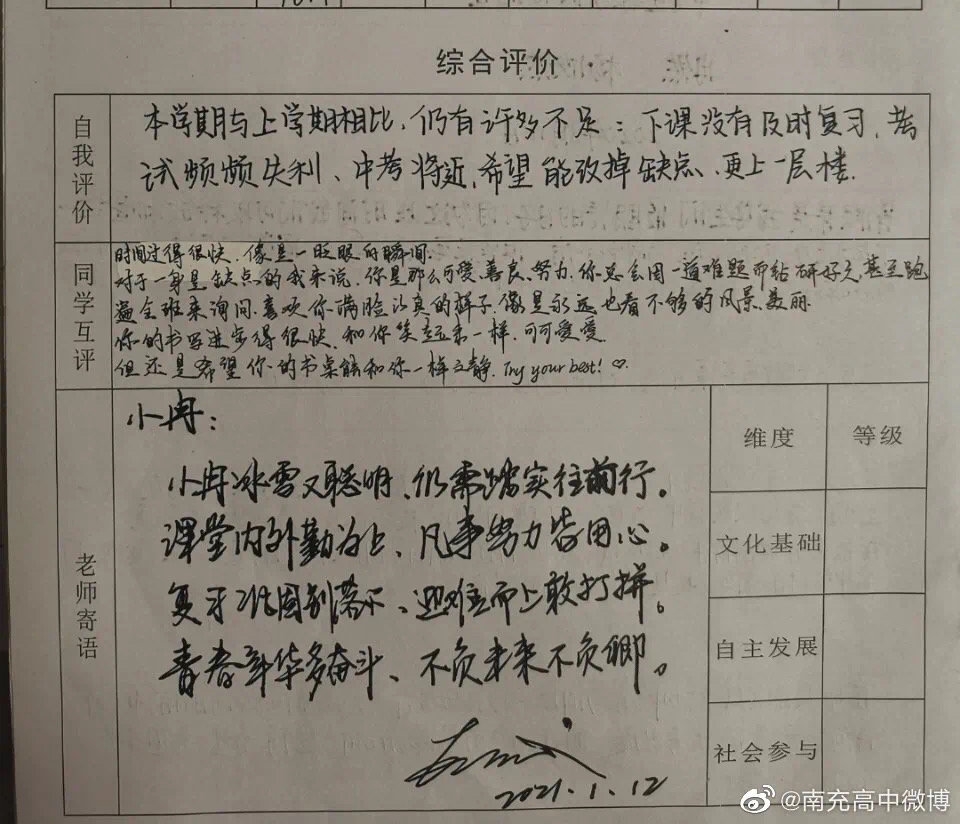 综合评价
自我评价
本学期与上学期相比,仍有许多不足:下课没有及时复习,考
试频频失利、中考将近,希望能改掉缺点、更上一层楼.
同学互评
时间过得很快,像是一眨眼的瞬间.
对于一身是缺点的我来说,你是那么可爱、善良、努力.你还会因一道难题而钻研好久,甚至跑
遍全班来询问.喜欢你满脸认真的样子.像是永远也看不够的风景、美丽.
你的书写进步得很快,和你笑起来一样,可可爱爱.
但还是希望你的书桌能和你一样文静. Try your best! ♡.
老师寄语
小冉:
小冉冰雪又聪明、仍需踏实往前行。
课堂内外勤为上、凡事努力皆用心。
复习巩固别落下、迎难而上敢打拼。
青春年华多奋斗、不负未来不负卿。
2021.1.12
维度 等级
文化基础
自主发展
社会参与
@南充高中微博